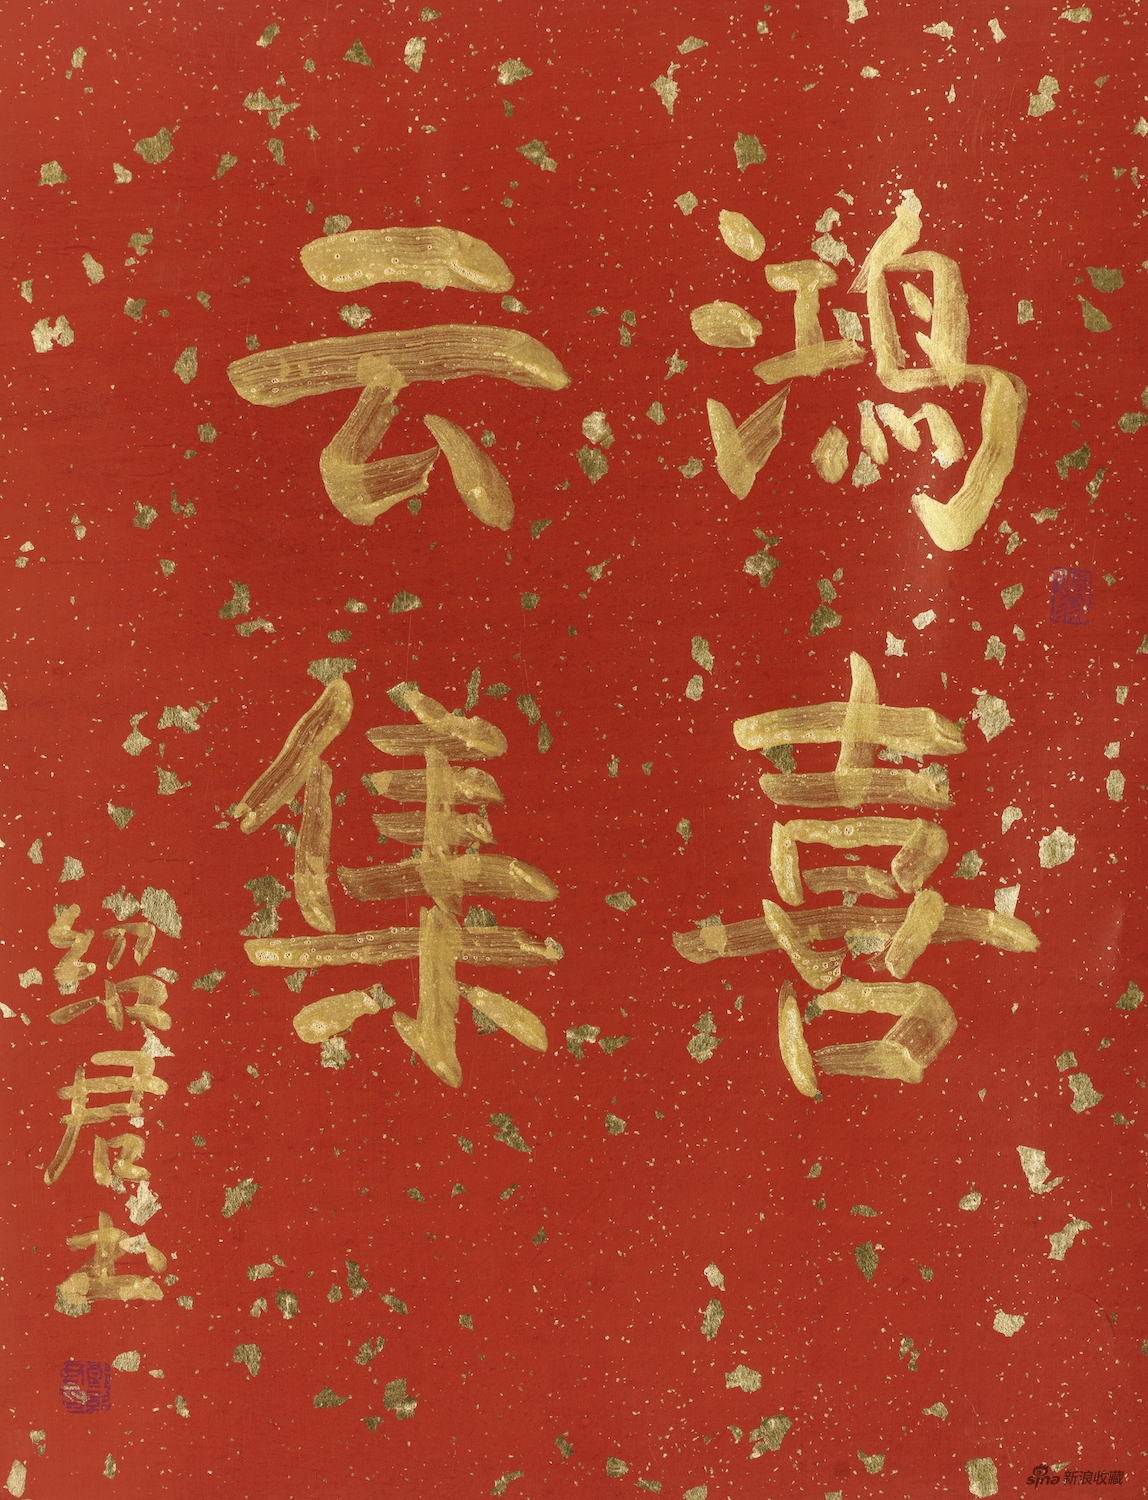 鸿喜
云集
绍君书
sina 新浪收藏